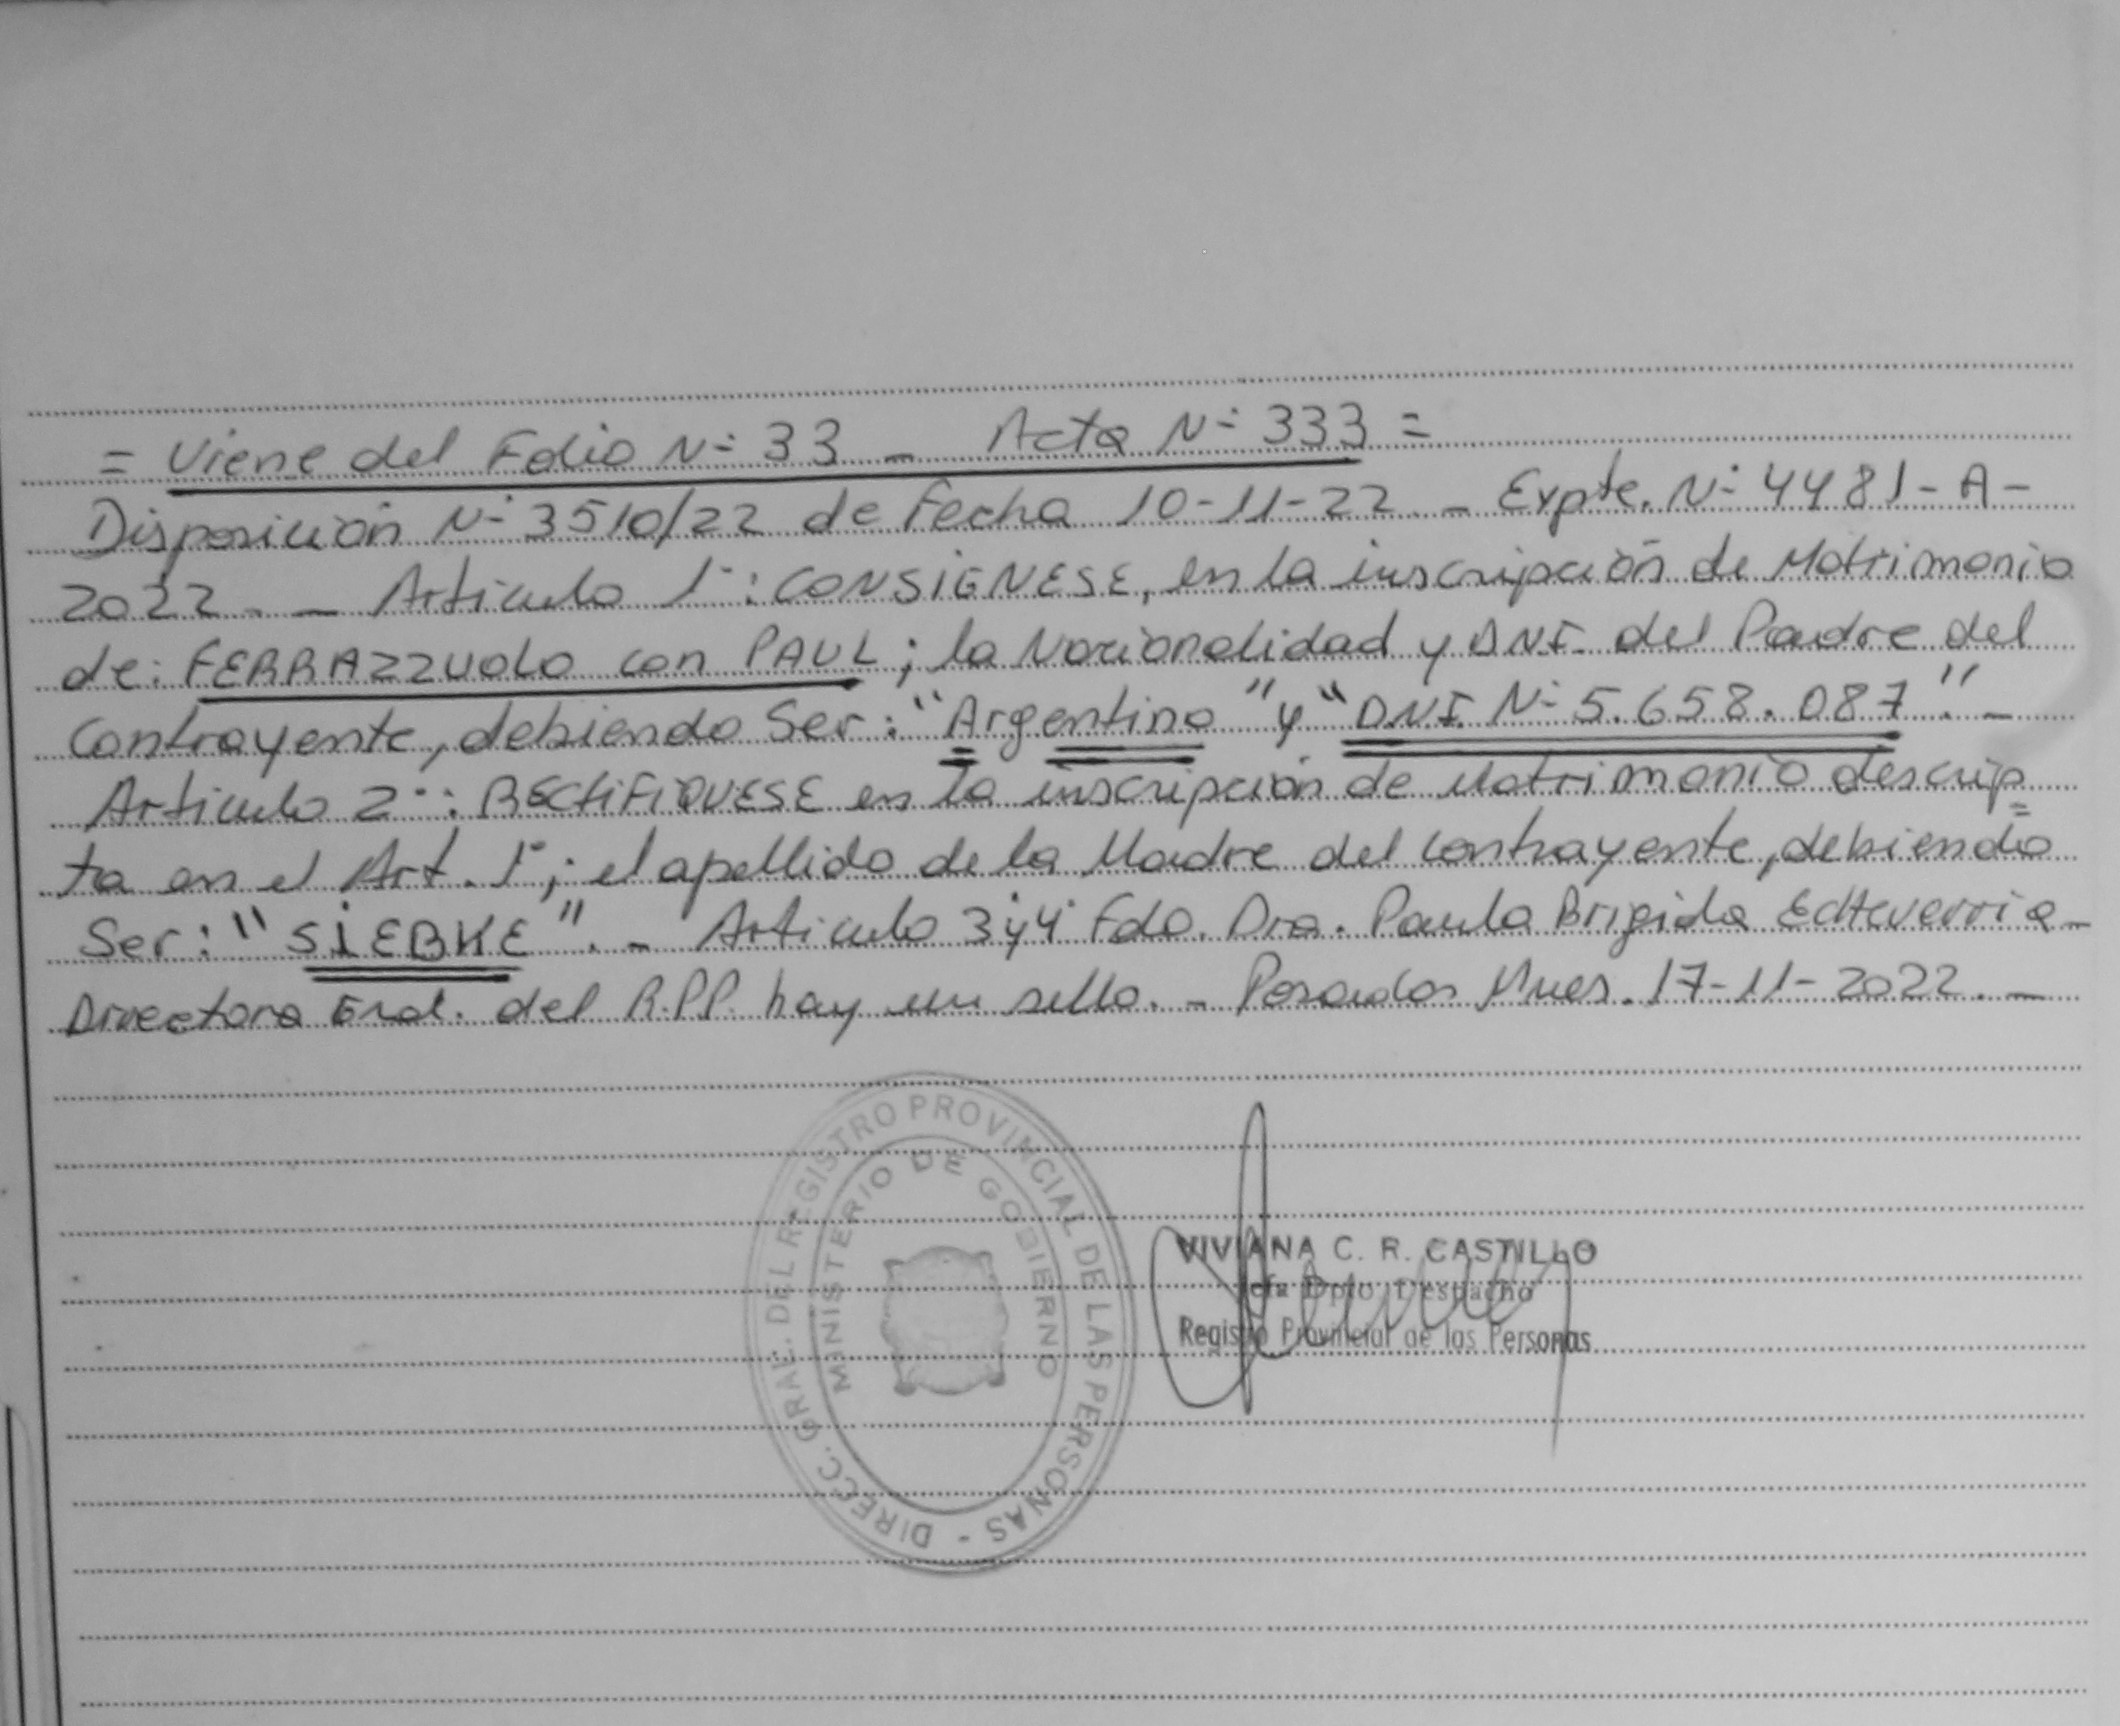 = Viene del Folio N° 33 _ Acta N° 333 =
Disposición N° 3510/22 de Fecha 10-11-22 _ Expte. N° 4481-A-
2022. _ Articulo 1°: CONSIGNESE, en la inscripción de Matrimonio
de: FERRAZZUOLO con PAUL; la Nacionalidad y DNI. del Padre del
Contrayente, debiendo Ser: "Argentino" y "DNI N° 5.658.087". _
Articulo 2°: RECTIFIQUESE en la inscripción de Matrimonio descrip=
ta en el Art. 1°; el apellido de la Madre del contrayente, debiendo
Ser: "SIEBKE". _ Articulo 3°y4° Fdo. Dra. Paula Brigida Echeverria _
Directora Gral. del R.P.P. hay un sello. _ Posadas Mnes. 17-11-2022. _
DIRECC. GRAL. DEL REGISTRO PROVINCIAL DE LAS PERSONAS -
MINISTERIO DE GOBIERNO
VIVIANA C. R. CASTILLO
Jefa Dpto. Despacho
Registro Provincial de las Personas